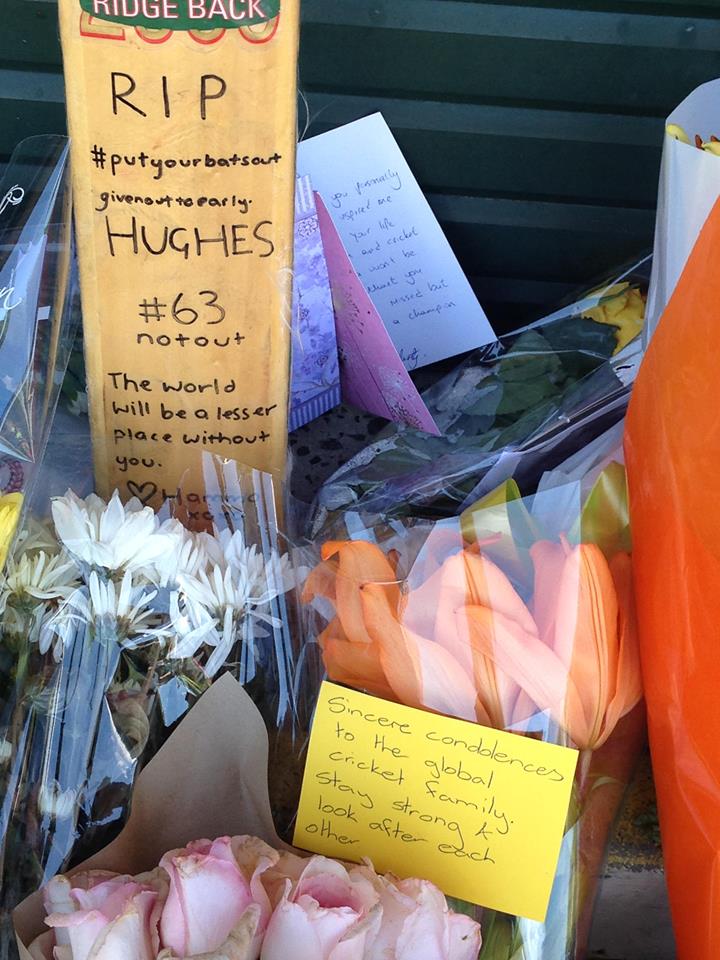 RIDGE BACK
2000
RIP
#putyourbatsout
givenouttoearly.
HUGHES
#63
notout
The world
will be a lesser
place without
you.
♡ Hammo
you personally
inspired me
your life
and cricket
won't be
missed but
a champion
Sincere condolences
to the global
cricket family.
Stay strong &
look after each
other